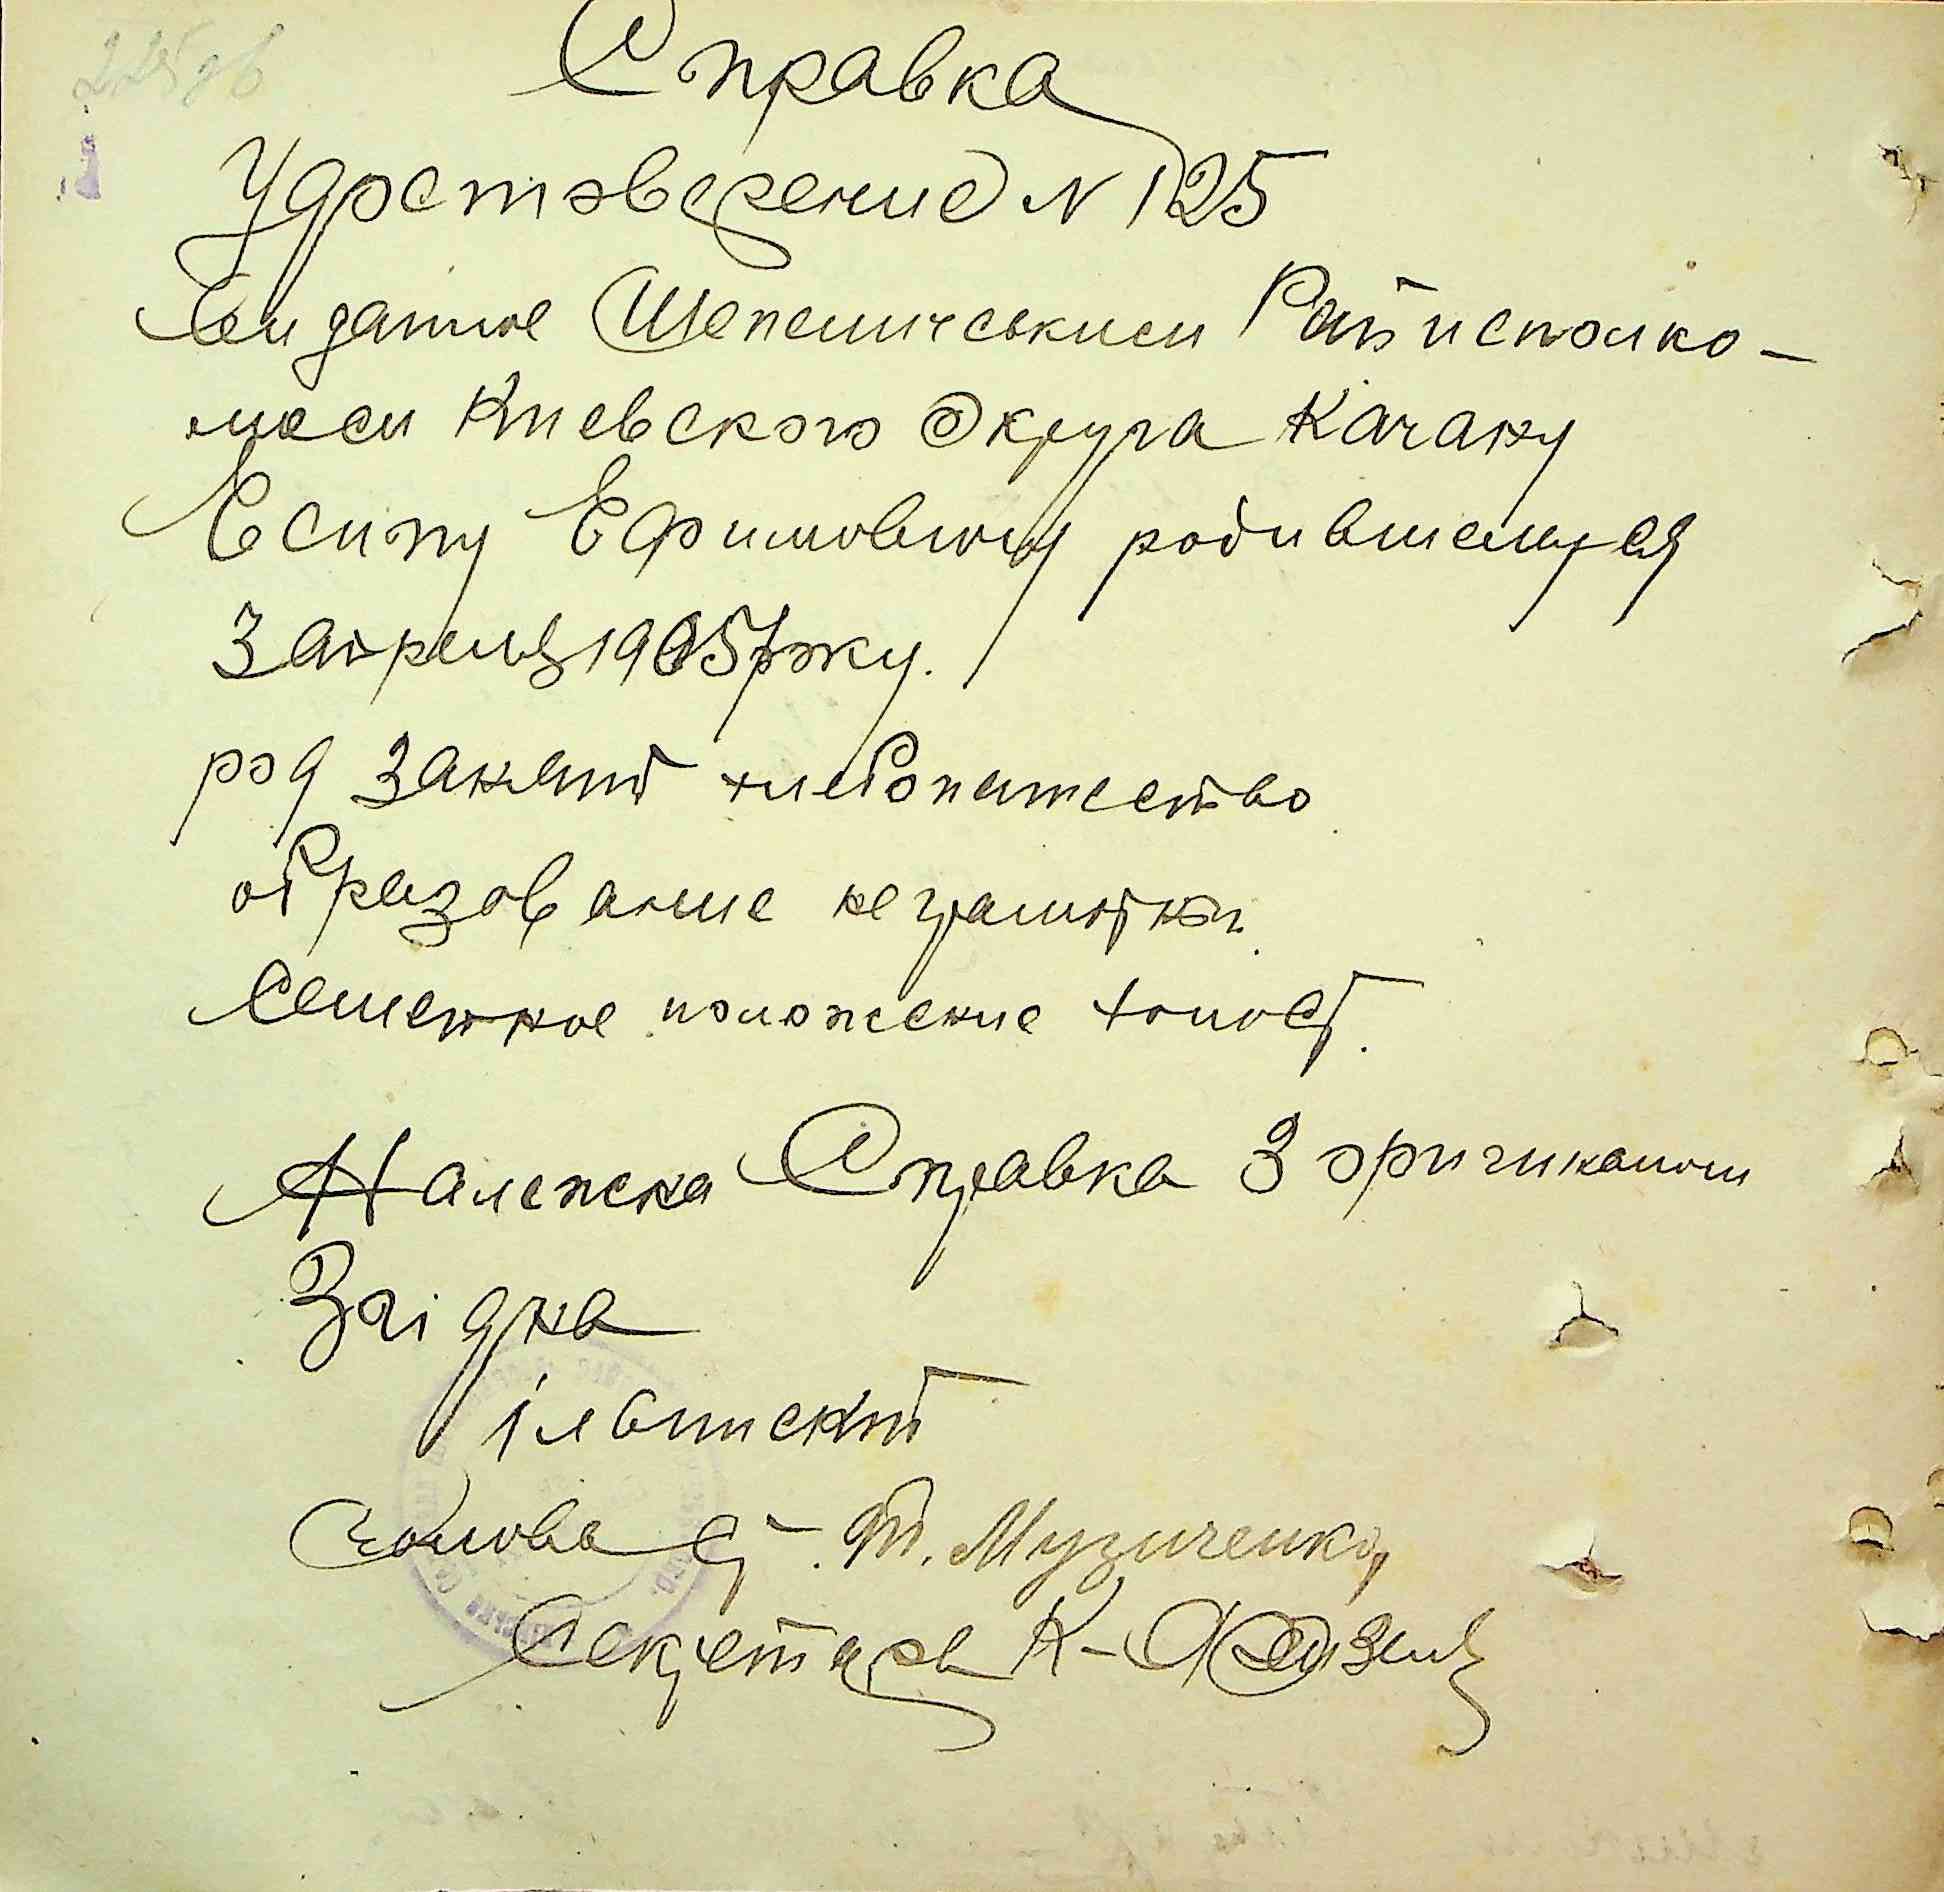 Справка
Удостоверение N 125
Виданное Шепеличськием Райисполко-
мом Киевского Округа Качану
Есипу Ефимовичу родившемуся
3 апреля 1905 году.
род занятий хлебопашество
образование неграмотный
Семейное положение холост.
Належна Справка З оригиналом
Згідна
Голова С-Р. Музиченко
Секретарь К-